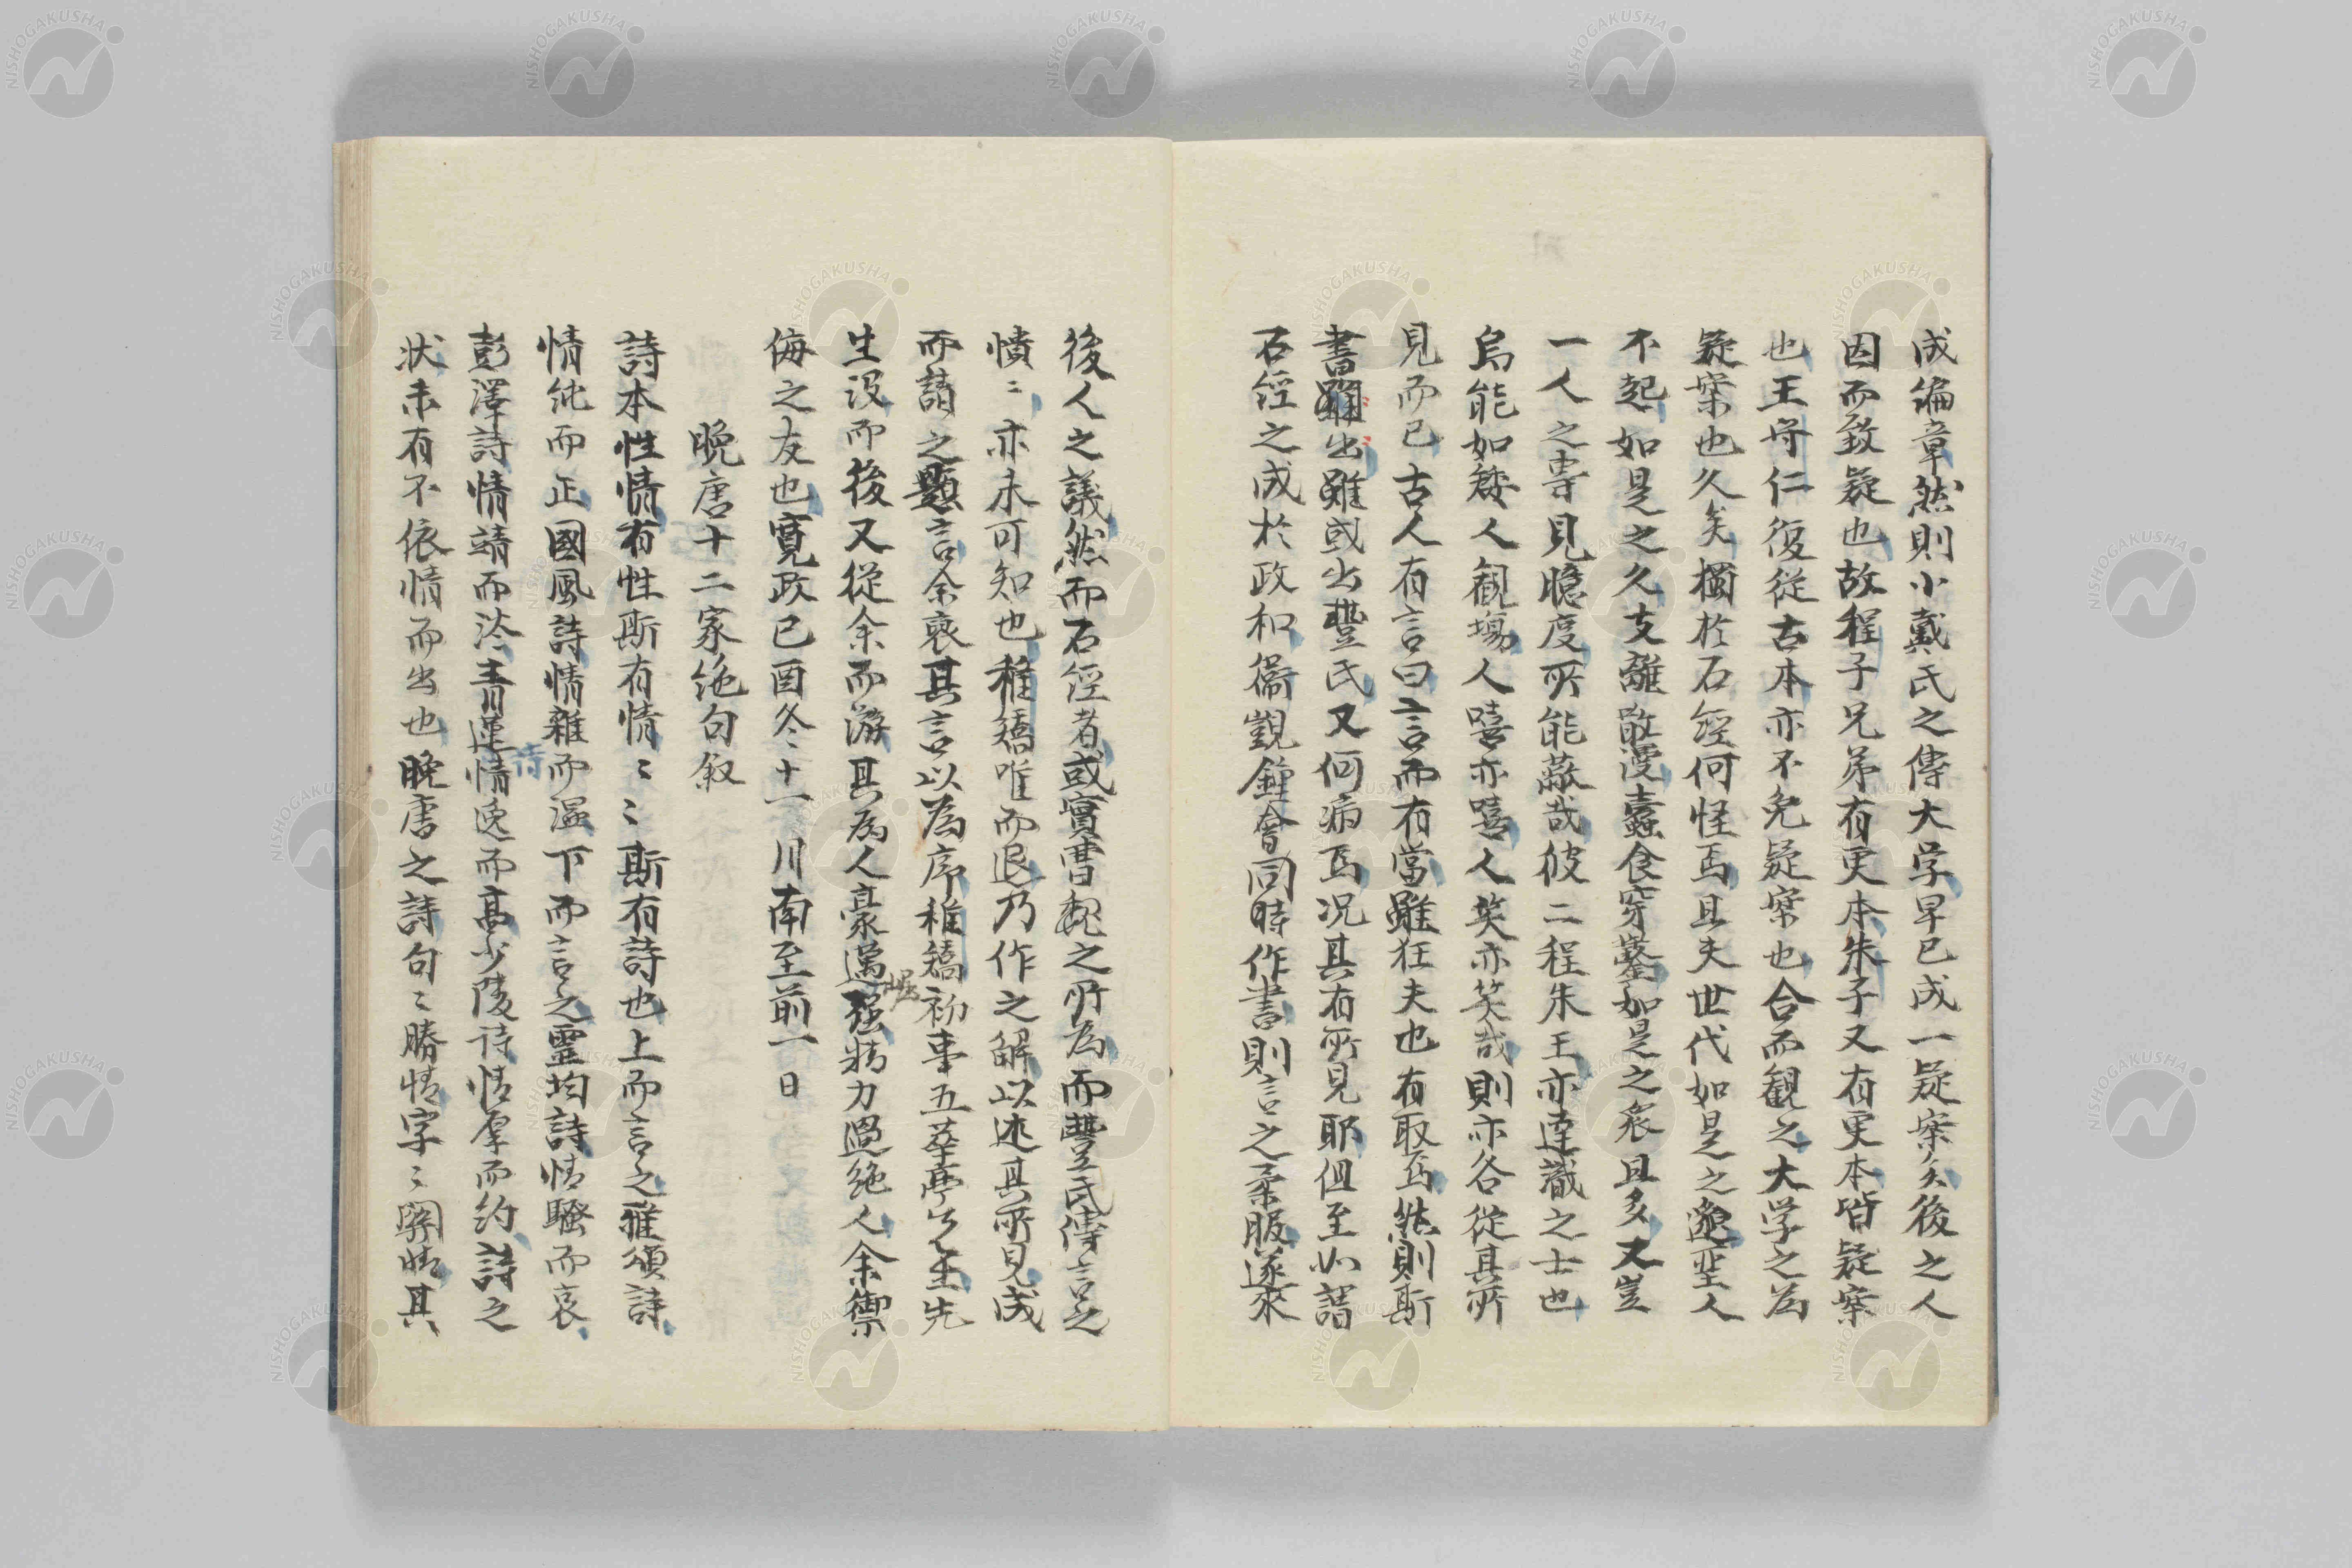 成編章然則小戴氏之傳大学早已成一疑案矣後之人
因而致疑也故程子兄弟有更本朱子又有更本皆疑案
也王守仁復從古本亦不免疑案也合而観之大学之為
疑案也久矣獨於石經何怪焉且夫世代如是之邈聖人
不起如是之久支離散漫蠹食穿鑿如是之衆且多又豈
一人之専見臆度所能蔽哉彼二程朱王亦達識之士也
烏能如矮人観場人嘻亦嘻人笑亦笑哉則亦各從其所
見而已古人有言曰言而有當雖狂夫也有取焉然則斯
書雖出雖或出豊氏又何病焉况其有所見耶但至如謂
石經之成於政和衞覬鍾會同時作書則言之柔服遂來
後人之議然而石經者或實曹魏之所為而豊氏傳言之
憒〻亦未可知也稚矯唯而退乃作之解以述其所見成
而請之題言余裒其言以為序稚矯初事五莘亭先生先
生沒而後又從余而游其為人豪邁强掘力過絶人余禦
侮之友也寛政已酉冬十一月南至前一日
晩唐十二家絶句叙
詩本性情有性斯有情〻〻斯有詩也上而言之雅頌詩
情純而正國風詩情雜而温下而言之靈均詩情騷而哀
彭澤詩情靖而冷青蓮詩情逸而高少陵詩情厚而約詩之
状未有不依情而出也晩唐之詩句〻勝情字〻關情其
NISHOGAKUSHA